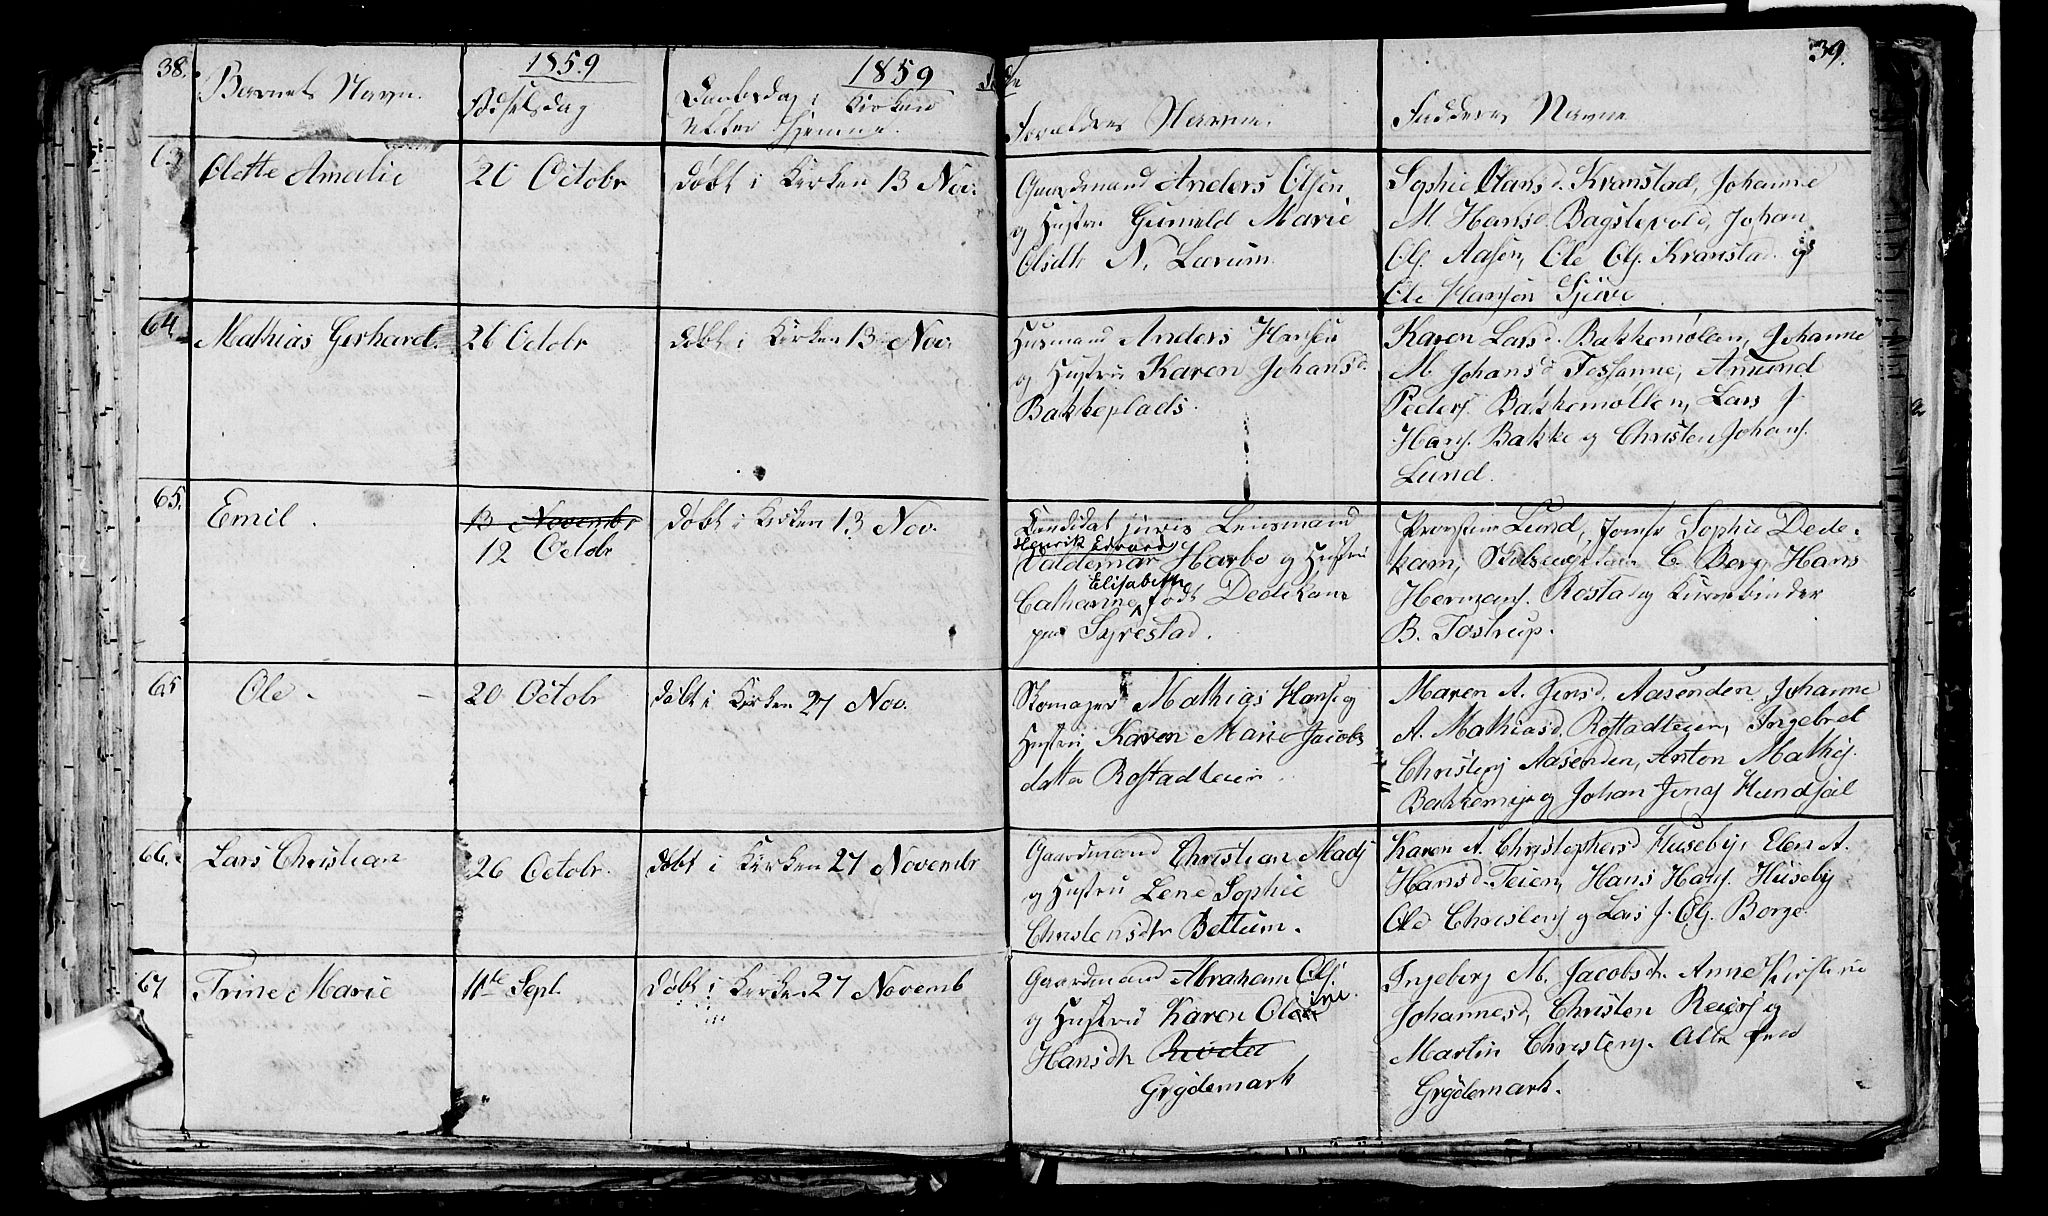 38.
1859
1859
39.
Barnets Navn.
Fødselsdag
Daabsdag i Kirken
eller Hjemme.
Forældres Navne.
Faddernes Navne
63
Olette Amalie
20 Octobr
døbt i Kirken 13 Nov.
Gaardmand Anders Olsen
og Hustru Gunild Marie
Olsdtr N. Lærum
Sophie Hansd. Kranstad, Johanne
M. Hansd. Bagstevold, Johan
Ols. Aasen, Ole Ols. Kranstad og
Ole Hansen
64
Mathias Gerhard.
26 Octobr
døbt i Kirken 13 Nov.
Husmand Anders Hansen
og Hustru Karen Johansd.
Bakkeplads.
Karen Larsd. Bakkemøllen, Johanne
M. Johansd Fossanne, Amund
Peders. Bakkemøllen, Lars J.
Hans. Bakke og Christen Johans.
Lund.
65.
Emil.
13 Novembr
12 Octobr
døbt i Kirken 13 Nov.
Candidat juris Lensmand
Henrik Edvard
Valdemar Harbo og Hustru
Elisabeth
Catharine født Dedekam
paa Syrestad.
Provstinde Lund, Jomfr Sophie Dede-
kam, C. Berg, Hans
Hermans. Rostad og
B. Tostrup.
65
Ole -
20 Octobr
døbt i Kirken 27 Nov.
Skomager Mathias Hans. og
Hustru Karen Marie Jacobs
datter Rostadteien.
Maren A. Jensd. Aasenden, Johanne
A. Mathiasd. Rostadteien, Ingebret
Christens. Aasenden, Anton Mathis.
og Johan Jens.
66.
Lars Christian
26 Octobr.
døbt i Kirken 27 Novembr
Gaardmand Christian Mads.
og Hustru Lene Sophie
Christensdtr Bettum.
Karen A. Christophersd Huseby, Elen A.
Hansd. Teien, Hans Hans. Huseby
Ole Christens. og Lars J. Ols. Borge.
67
Trine Marie
11te Sept.
døbt i Kirken 27 Novemb
Gaardmand Abraham Ols.
og Hustru Karen Oleine.
Hansdtr
Grødemark
Ingeborg M. Jacobsdtr. Anne Kirstine
Johannesd, Christen Reiers. og
Martin Christens. Alle fra
Grødemark.